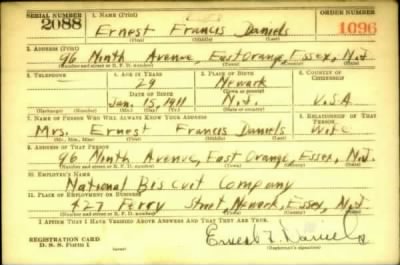 SERIAL NUMBER 1. NAME (Print) ORDER NUMBER
2088 Ernest Francis Daniels 1096
(First) (Middle) (Last)
2. ADDRESS (Print)
96 Ninth Avenue, East Orange, Essex, N.J.
(Number and street or R. F. D. number) (Town) (County) (State)
3. TELEPHONE 4. AGE IN YEARS 5. PLACE OF BIRTH 6. COUNTRY OF CITIZENSHIP
29 Newark
DATE OF BIRTH (Town or county)
Jan. 15, 1911 N.J. U.S.A
(Exchange) (Number) (Mo.) (Day) (Yr.) (State or country)
7. NAME OF PERSON WHO WILL ALWAYS KNOW YOUR ADDRESS 8. RELATIONSHIP OF THAT PERSON
Mrs. Ernest Francis Daniels Wife
(Mr., Mrs., Miss) (First) (Middle) (Last)
9. ADDRESS OF THAT PERSON
96 Ninth Avenue, East Orange, Essex, N.J.
(Number and street or R. F. D. number) (Town) (County) (State)
10. EMPLOYER'S NAME
National Biscuit Company
11. PLACE OF EMPLOYMENT OR BUSINESS
427 Ferry Street Newark, Essex, N.J.
(Number and street or R. F. D. number) (Town) (County) (State)
I AFFIRM THAT I HAVE VERIFIED ABOVE ANSWERS AND THAT THEY ARE TRUE.
REGISTRATION CARD
D. S. S. Form 1 Ernest F. Daniels
(Registrant's signature)